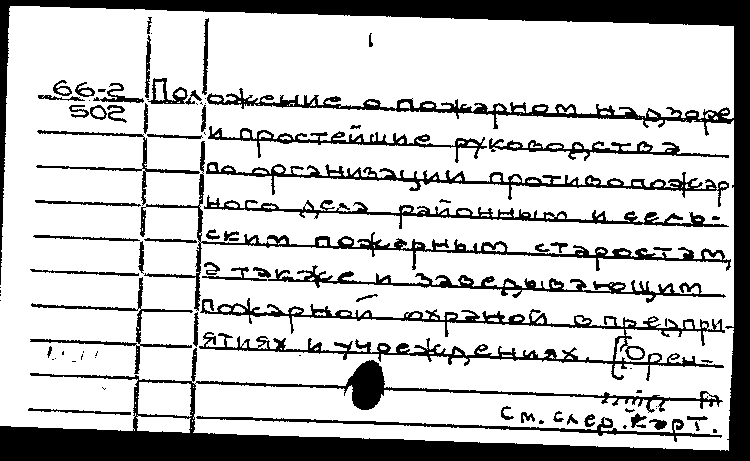 66-2
502
Положение о пожарном надзоре
и простейшие руководства
по организации противопожар-
ного дела районным и сель-
ским пожарным старостам,
а также и заведывающим
пожарной охраной в предпри-
ятиях и учреждениях. [Орен-
См. след. карт.